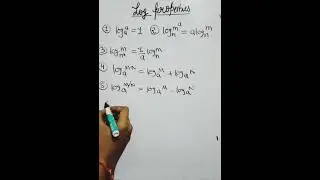 Log properties
① log_a^a = 1 ② log_n^{m^a} = a log_n^m
③ log_{n^a}^m = 1/a log_n^m
④ log_a^{m·n} = log_a^m + log_a^n
⑤ log_a^{m/n} = log_a^m - log_a^n